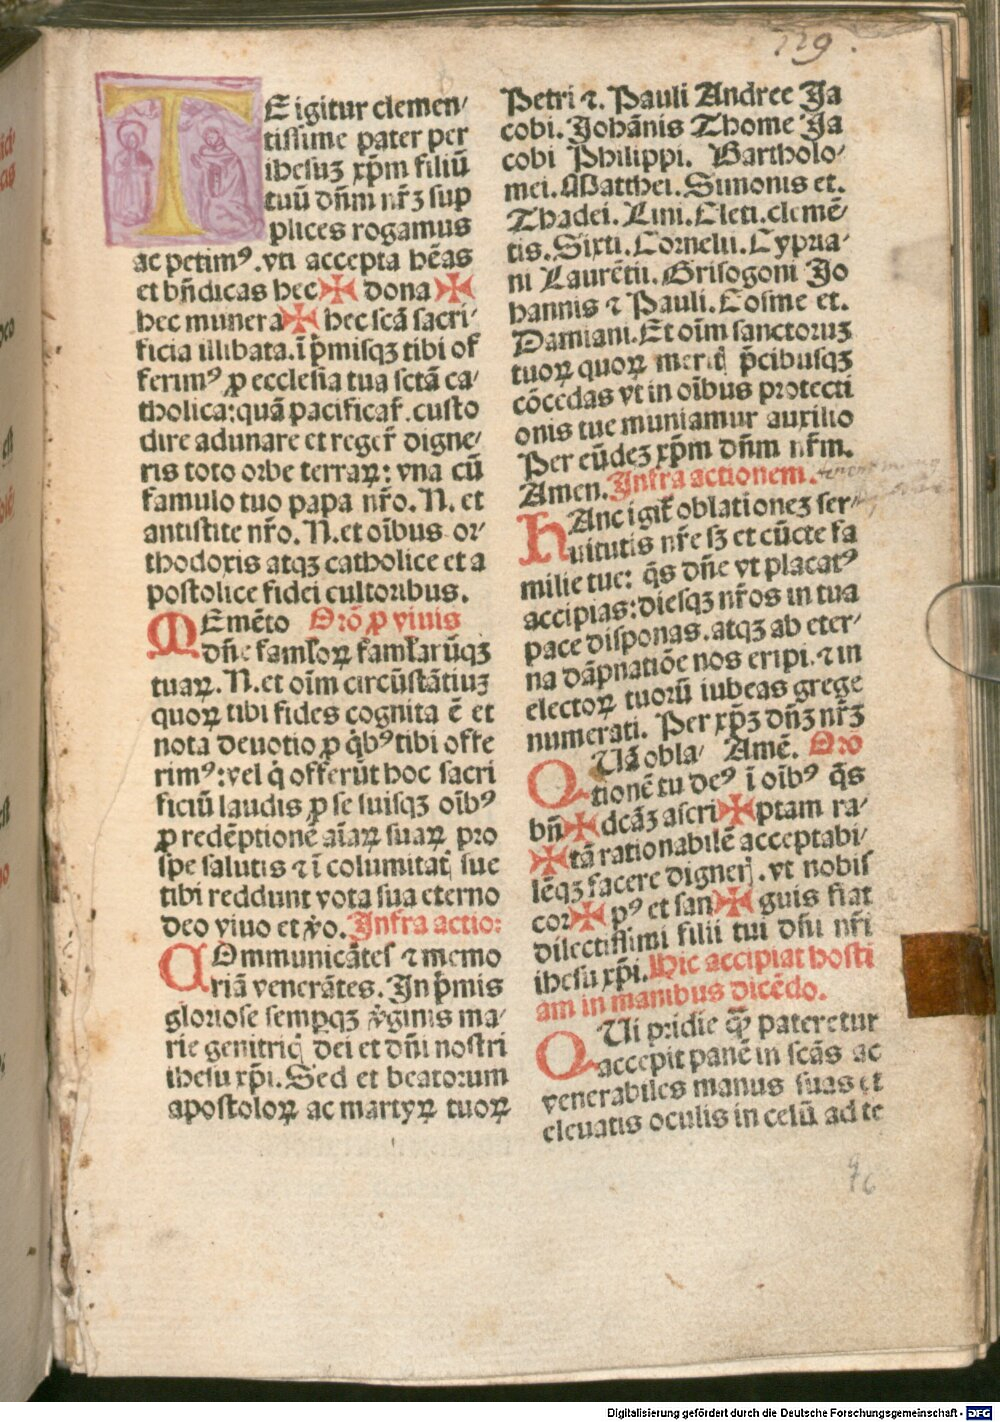 TE igitur clemen/
tissime pater per
ihesuʒ xp̄m filiū
tuū dn̄m nr̄ʒ sup
plices rogamus
ac petimꝰ.vti accepta hēas
et bn̄dicas hec ✠ dona ✠
hec munera ✠ hec scā sacri/
ficia illibata.ī p̄misqʒ tibi of
ferimꝰ ꝓ ecclesia tua sctā ca/
tholica:quā pacificar̄.custo
dire adunare et reger̄ digne/
ris toto orbe terraꝝ: vna cū
famulo tuo papa nr̄o. N. et
antistite nr̄o. N.et oībus or/
thodoxis atqʒ catholice et a
postolice fidei cultoribus.
MEmēto Orō ꝓ viuis
dn̄e famloꝝ famlarūqʒ
tuaꝝ. N.et oīm circūstātiuʒ
quoꝝ tibi fides cognita ē et
nota deuotio ꝓ q̇bꝰ tibi offe
rimꝰ:vel q̇ offerūt hoc sacri
ficiū laudis ꝓ se suisqʒ oībꝰ
ꝓ redēptionē aīaꝝ suaꝝ pro
spe salutis ⁊ ī columitatꝭ sue
tibi reddunt vota sua eterno
deo viuo et v̄o. Infra actio:
COmmunicātes ⁊ memo
riā venerātes. In p̄mis
gloriose semꝑqʒ v̄ginis ma/
rie genitricꝭ dei et dn̄i nostri
ihesu xp̄i. Sed et beatorum
apostoloꝝ ac martyꝝ tuoꝝ
Petri ⁊. Pauli Andree Ja
cobi. Johānis Thome Ja
cobi Philippi. Bartholo/
mei. Matthei. Simonis et.
Thadei. Lini. Cleti. clemē/
tis. Sixti. Cornelii. Cypria/
ni Laurētii. Grisogoni Jo
hannis ⁊ Pauli. Cosme et.
Damiani. Et oīm sanctoruʒ
tuoꝝ quoꝝ meritꝭ p̄cibusqʒ
cōcedas vt in oībus protecti
onis tue muniamur auxilio
Per eūdeʒ xp̄m dn̄m nr̄m.
Amen. Infra actionem.
HAnc igit̄ oblationeʒ ser/
uitutis nr̄e sʒ et cūcte fa
milie tue: q̄s dn̄e vt placatꝰ
accipias: diesqʒ nr̄os in tua
pace disponas. atqʒ ab eter/
na dāpnatiōe nos eripi. ⁊ in
electoꝝ tuorū iubeas grege
numerati. Per xp̄ʒ dn̄ʒ nr̄ʒ
QUā obla/ Amē. Oro
tionē tu deꝰ ī oībꝰ q̄s
bn̄ ✠ dcāʒ ascri ✠ ptam ra/
✠ tā rationabilē acceptabi/
lēqʒ facere digneꝭ. vt nobis
cor ✠ pꝰ et san ✠ guis fiat
dilectissimi filii tui dn̄i nr̄i
ihesu xp̄i. Hic accipiat hosti
am in manibus dicēdo.
QUi pridie qꝫ pateretur
accepit panē in scās ac
venerabiles manus suas et
eleuatis oculis in celū ad te
96
Digitalisierung gefördert durch die Deutsche Forschungsgemeinschaft - DFG